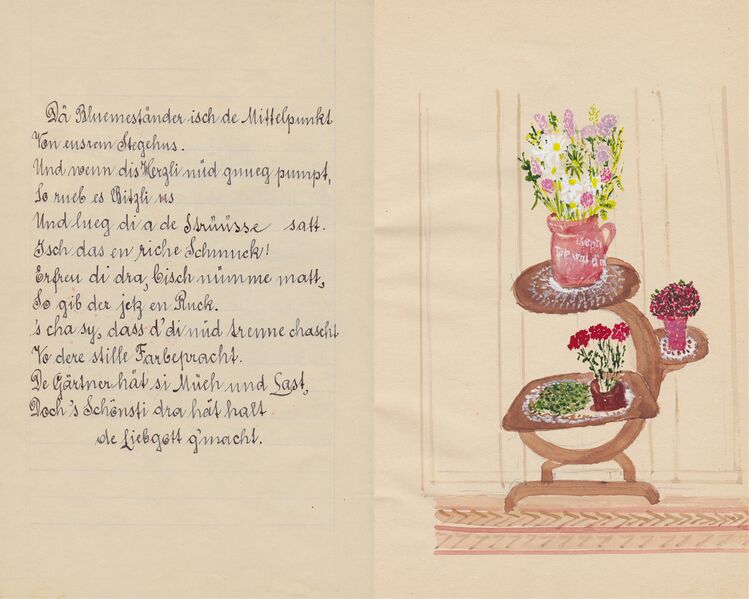 Dä Bluemeständer isch de Mittelpunkt
Von eusrem Stegehus.
Und wenn dis Herzli nüd gnueg pumpt,
So rueb es Bitzli us
Und lueg di a de Strüüsse satt.
Isch das en riche Schmuck!
Erfreu di dra, bisch nümme matt,
So gib der jetz en Ruck.
's cha sy, dass d'di nüd trenne chascht
Vo dere stille Farbepracht.
De Gärtner hät si Müeh und Last,
Doch 's Schönsti dra hät halt
de Liebgott g'macht.